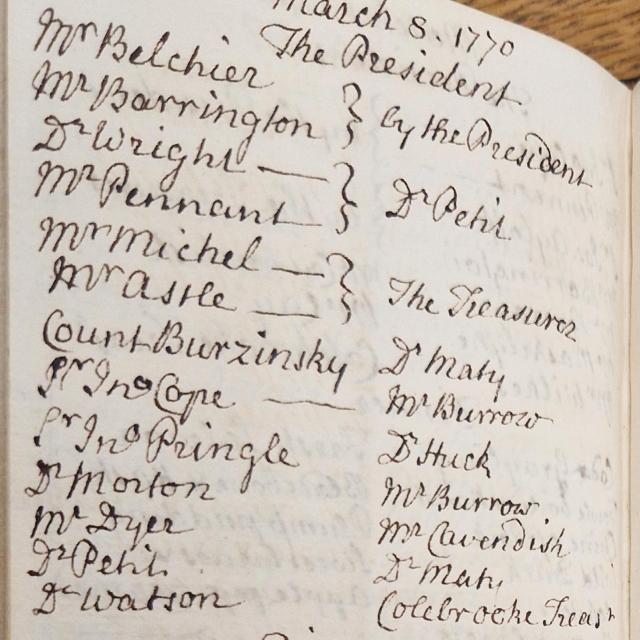 March 8. 1770
The President
Mr Belchier
Mr Barrington } by the President
Dr Wright —
Mr Pennant } Dr Petit
Mr Michel —
Mr Astle — } The Treasurer
Count Burzinsky Dr Maty
Sr Jno Cope — Mr Burrow
Sr Jno Pringle Dr Huck
Dr Morton Mr Burrow
Mr Dyer Mr Cavendish
Dr Petit Dr Maty
Dr Watson Colebrooke Treasr